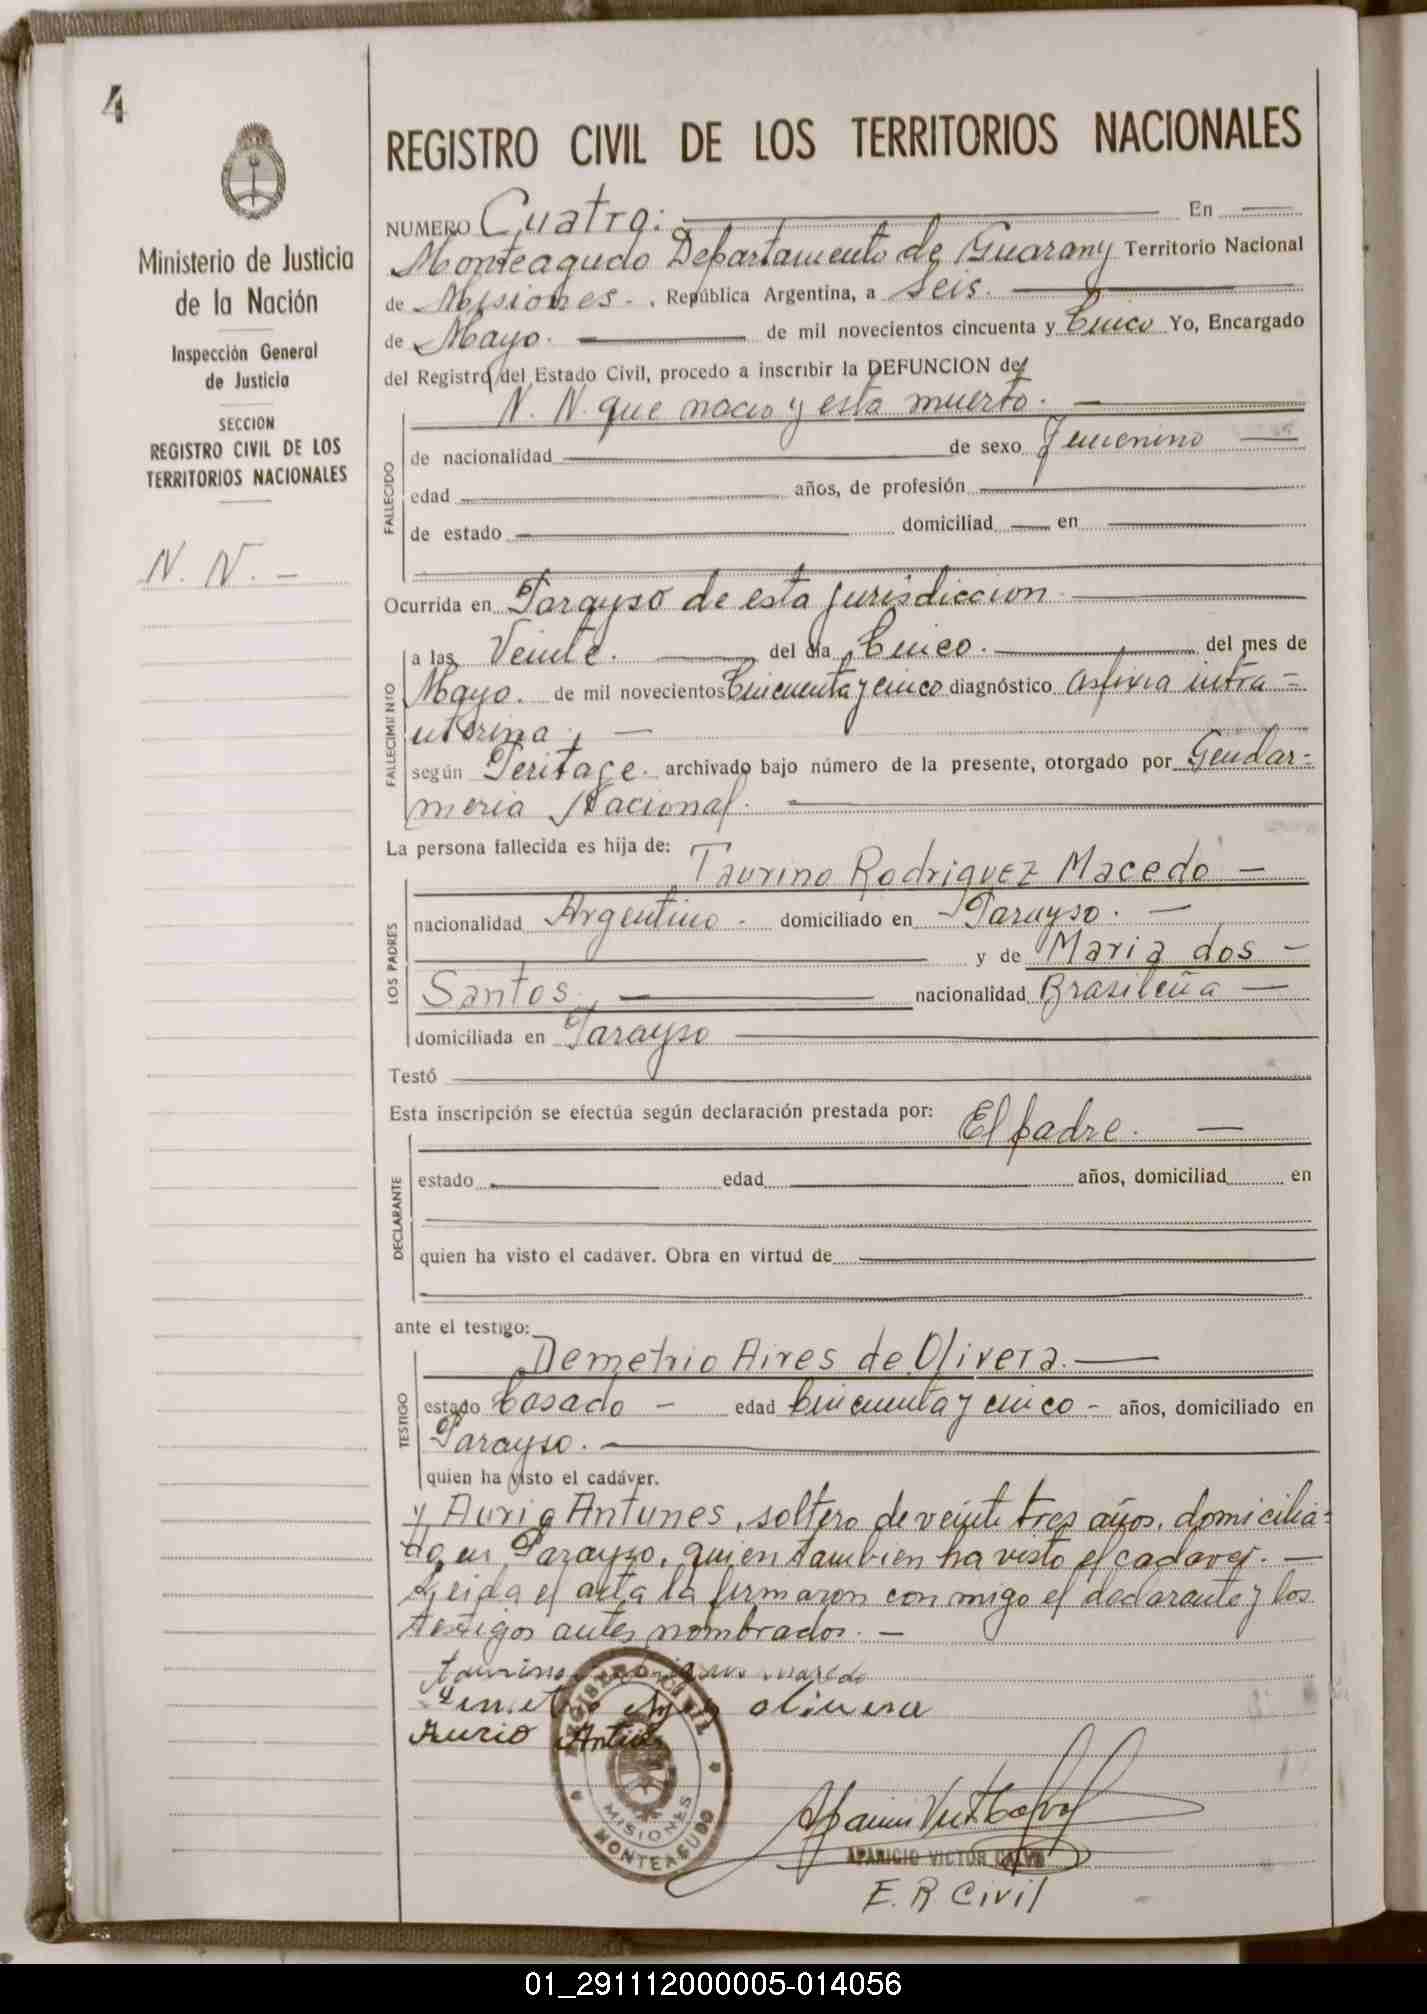 4
Ministerio de Justicia
de la Nación
Inspección General
de Justicia
SECCION
REGISTRO CIVIL DE LOS
TERRITORIOS NACIONALES
N. N. -
REGISTRO CIVIL DE LOS TERRITORIOS NACIONALES
NUMERO Cuatro: En
Monteagudo Departamento de Guarany Territorio Nacional
de Misiones - . República Argentina, a seis.
de Mayo. de mil novecientos cincuenta y Cinco Yo, Encargado
del Registro del Estado Civil, procedo a inscribir la DEFUNCION de
N. N. que nacio y esta muerto. -
FALLECIDO
de nacionalidad de sexo Femenino
edad años, de profesión
de estado domiciliad en
Ocurrida en Parayso de esta jurisdiccion
FALLECIMIENTO
a las Veinte. del día Cinco. del mes de
Mayo. de mil novecientos Cincuenta y cinco diagnóstico asfixia intra=
uterina. -
según Peritage. archivado bajo número de la presente, otorgado por Gendar=
meria Nacional.
La persona fallecida es hija de:
Taurino Rodriguez Macedo -
LOS PADRES
nacionalidad Argentino - domiciliado en Parayso. -
y de Maria dos -
Santos nacionalidad Brasileña -
domiciliada en Parayso
Testó
Esta inscripción se efectúa según declaración prestada por:
El padre. -
DECLARANTE
estado edad años, domiciliad en
quien ha visto el cadáver. Obra en virtud de
ante el testigo:
Demetrio Aires de Olivera. -
TESTIGO
estado Casado - edad Cincuenta y cinco - años, domiciliado en
Parayso. -
quien ha visto el cadáver.
y Aurio Antunes, soltero de veinte tres años, domicilia=
do en Parayso, quien tambien ha visto el cadaver. -
Leida el acta la firmaron con migo el declarante y los
testigos antes nombrados. -
taurino macedo
olivera
Aurio Antunes
REGISTRO CIVIL
MISIONES
MONTEAGUDO
APARICIO VICTOR CALVO
E. R. Civil
01_291112000005-014056